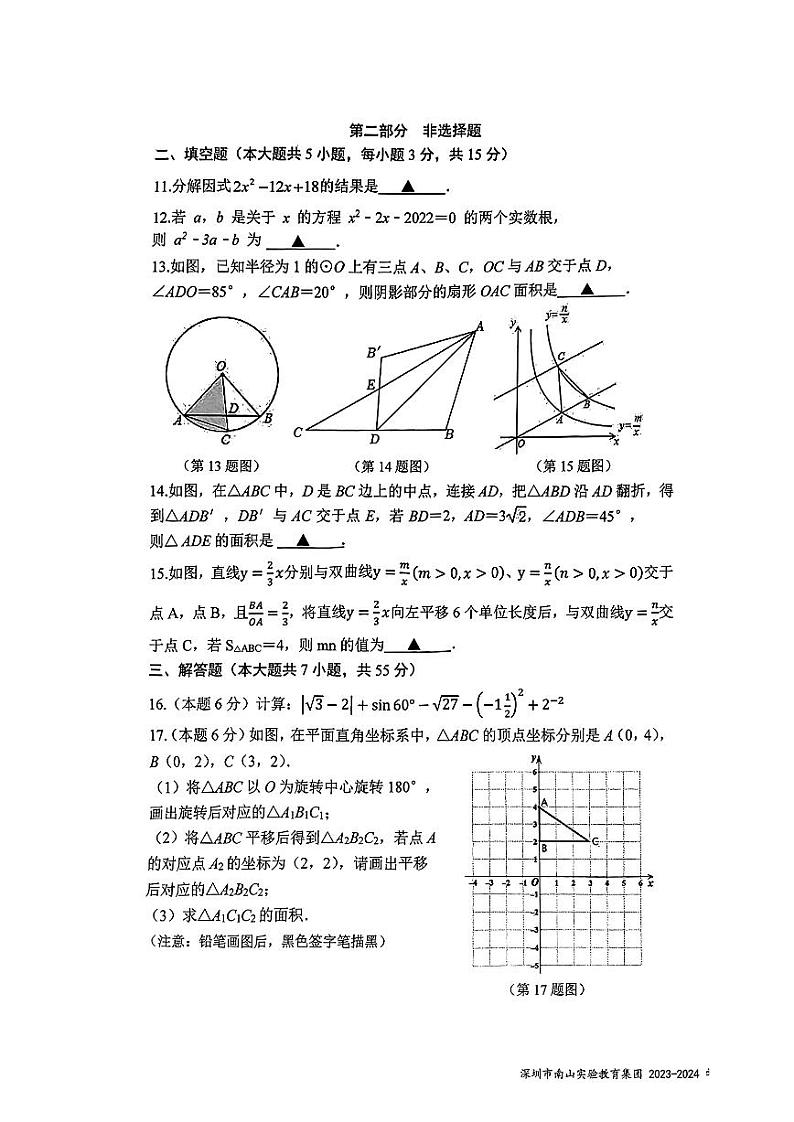 第二部分 非选择题
二、填空题（本大题共 5 小题，每小题 3 分，共 15 分）
11.分解因式2x² −12x+18的结果是 ▲ .
12.若 a，b 是关于 x 的方程 x²－2x－2022＝0 的两个实数根，
则 a²－3a－b 为 ▲ .
13.如图，已知半径为 1 的⊙O 上有三点 A、B、C，OC 与 AB 交于点 D，
∠ADO＝85°，∠CAB＝20°，则阴影部分的扇形 OAC 面积是 ▲ .
O
A
D
B
C
A
B′
E
C
D
B
y
y=n/x
C
A
B
y=m/x
O
x
（第 13 题图） （第 14 题图） （第 15 题图）
14.如图，在△ABC 中，D 是 BC 边上的中点，连接 AD，把△ABD 沿 AD 翻折，得
到△ADB′，DB′与 AC 交于点 E，若 BD=2，AD=3√2，∠ADB=45°，
则△ ADE 的面积是 ▲ .
15.如图，直线y＝2/3x分别与双曲线y＝m/x(m＞0,x＞0)、y＝n/x(n＞0,x＞0)交于
点 A，点 B，且BA/OA＝2/3，将直线y＝2/3x向左平移 6 个单位长度后，与双曲线y＝n/x交
于点 C，若 S△ABC＝4，则 mn 的值为 ▲ .
三、解答题（本大题共 7 小题，共 55 分）
16.（本题 6 分）计算：|√3 − 2| + sin 60° − √27 − (−1 1/2)² + 2⁻²
17.（本题 6 分）如图，在平面直角坐标系中，△ABC 的顶点坐标分别是 A（0，4），
B（0，2），C（3，2）.
（1）将△ABC 以 O 为旋转中心旋转 180°，
画出旋转后对应的△A₁B₁C₁；
（2）将△ABC 平移后得到△A₂B₂C₂，若点 A
的对应点 A₂ 的坐标为（2，2），请画出平移
后对应的△A₂B₂C₂；
（3）求△A₁C₁C₂ 的面积.
（注意：铅笔画图后，黑色签字笔描黑）
y
6
5
4 A
3
2 B C
1
-4 -3 -2 -1 O 1 2 3 4 5 6 x
-1
-2
-3
-4
-5
（第 17 题图）
深圳市南山实验教育集团 2023-2024